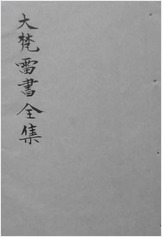 大梵雷書全集